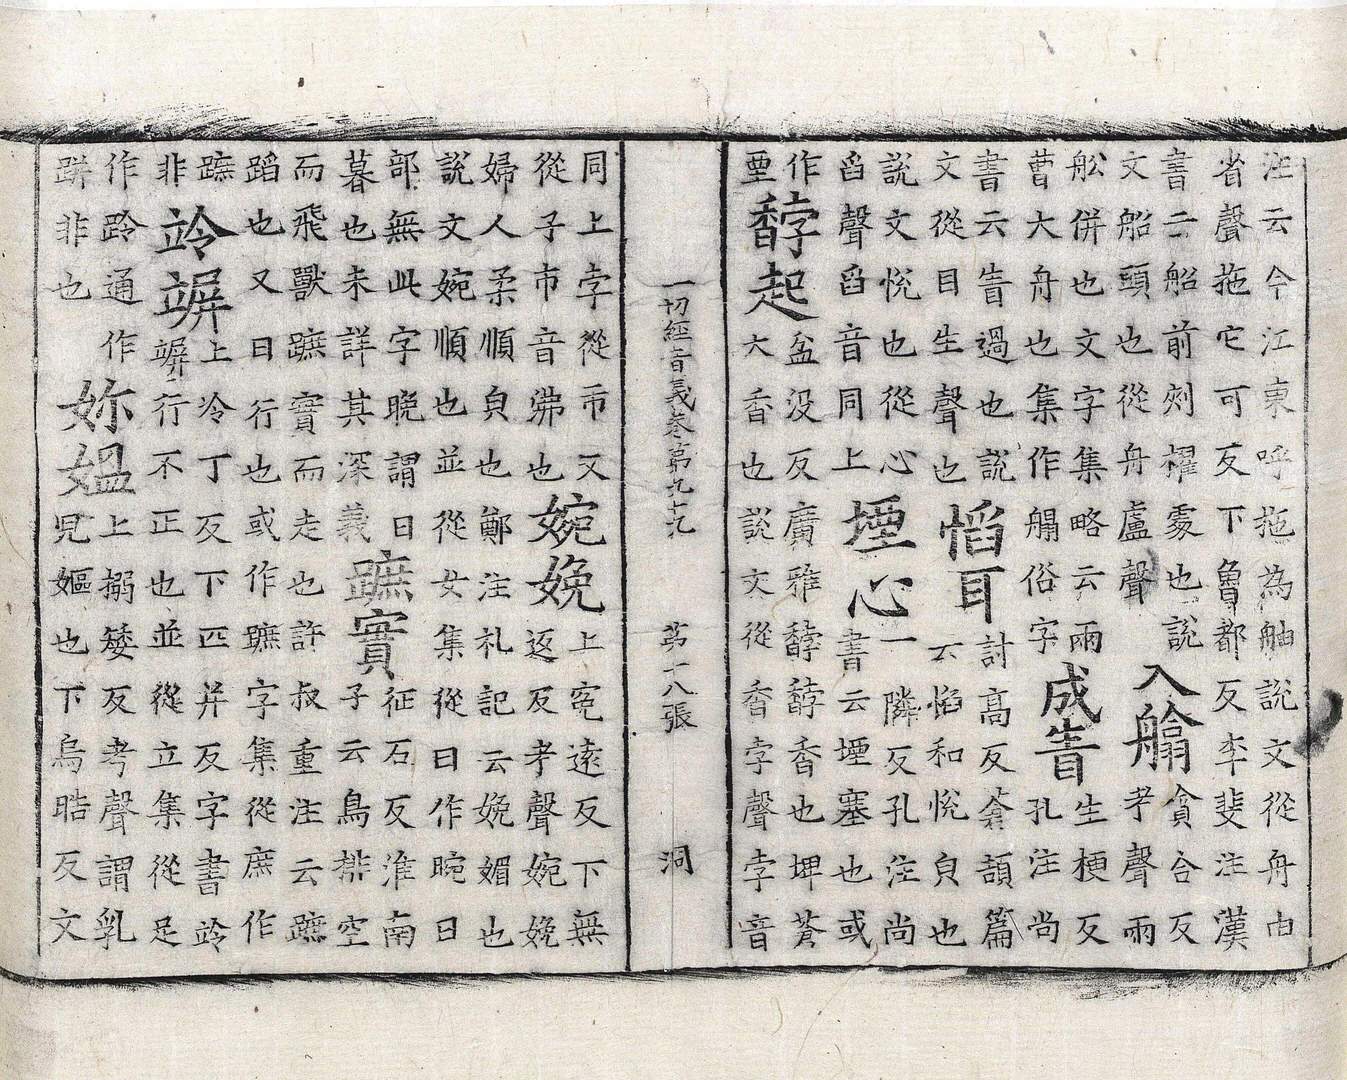 注云今江東呼拖為舳說文從舟由
省聲拖它可反下魯都反李斐注漢
書云船前刾櫂䖏也說
文船頭也從舟盧聲
入艙
貪合反
考聲兩
舩併也文字集略云兩
曹大舟也集作艒俗字
成眚
生梗反
孔注尚
書云眚過也說
文從目生聲也
慆耳
討高反蒼頡篇
云慆和悅皃也
說文悅也從心
舀聲舀音同上
堙心
一隣反孔注尚
書云堙塞也或
作
垔
馞起
盆没反廣雅馞馞香也埤蒼
大香也說文從香孛聲孛音
一切經音義卷第九十九 第十八張 洞
同上孛從市又
從子市音弗也
婉娩
上寃遠反下無
返反考聲婉娩
婦人柔順皃也鄭注礼記云娩媚也
說文婉順也並從女集從日作晼日
部無此字晚謂日
暮也未詳其深義
蹠實
征石反淮南
子云鳥排空
而飛獸蹠實而走也許叔重注云蹠
蹈也又曰行也或作蹠字集從庶作
蹠
非
竛竮
上冷丁反下匹并反字書竛
竮行不正也並從立集從足
作跉通作
跰非也
妳媼
上搦矮反考聲謂乳
皃嫗也下烏晧反文